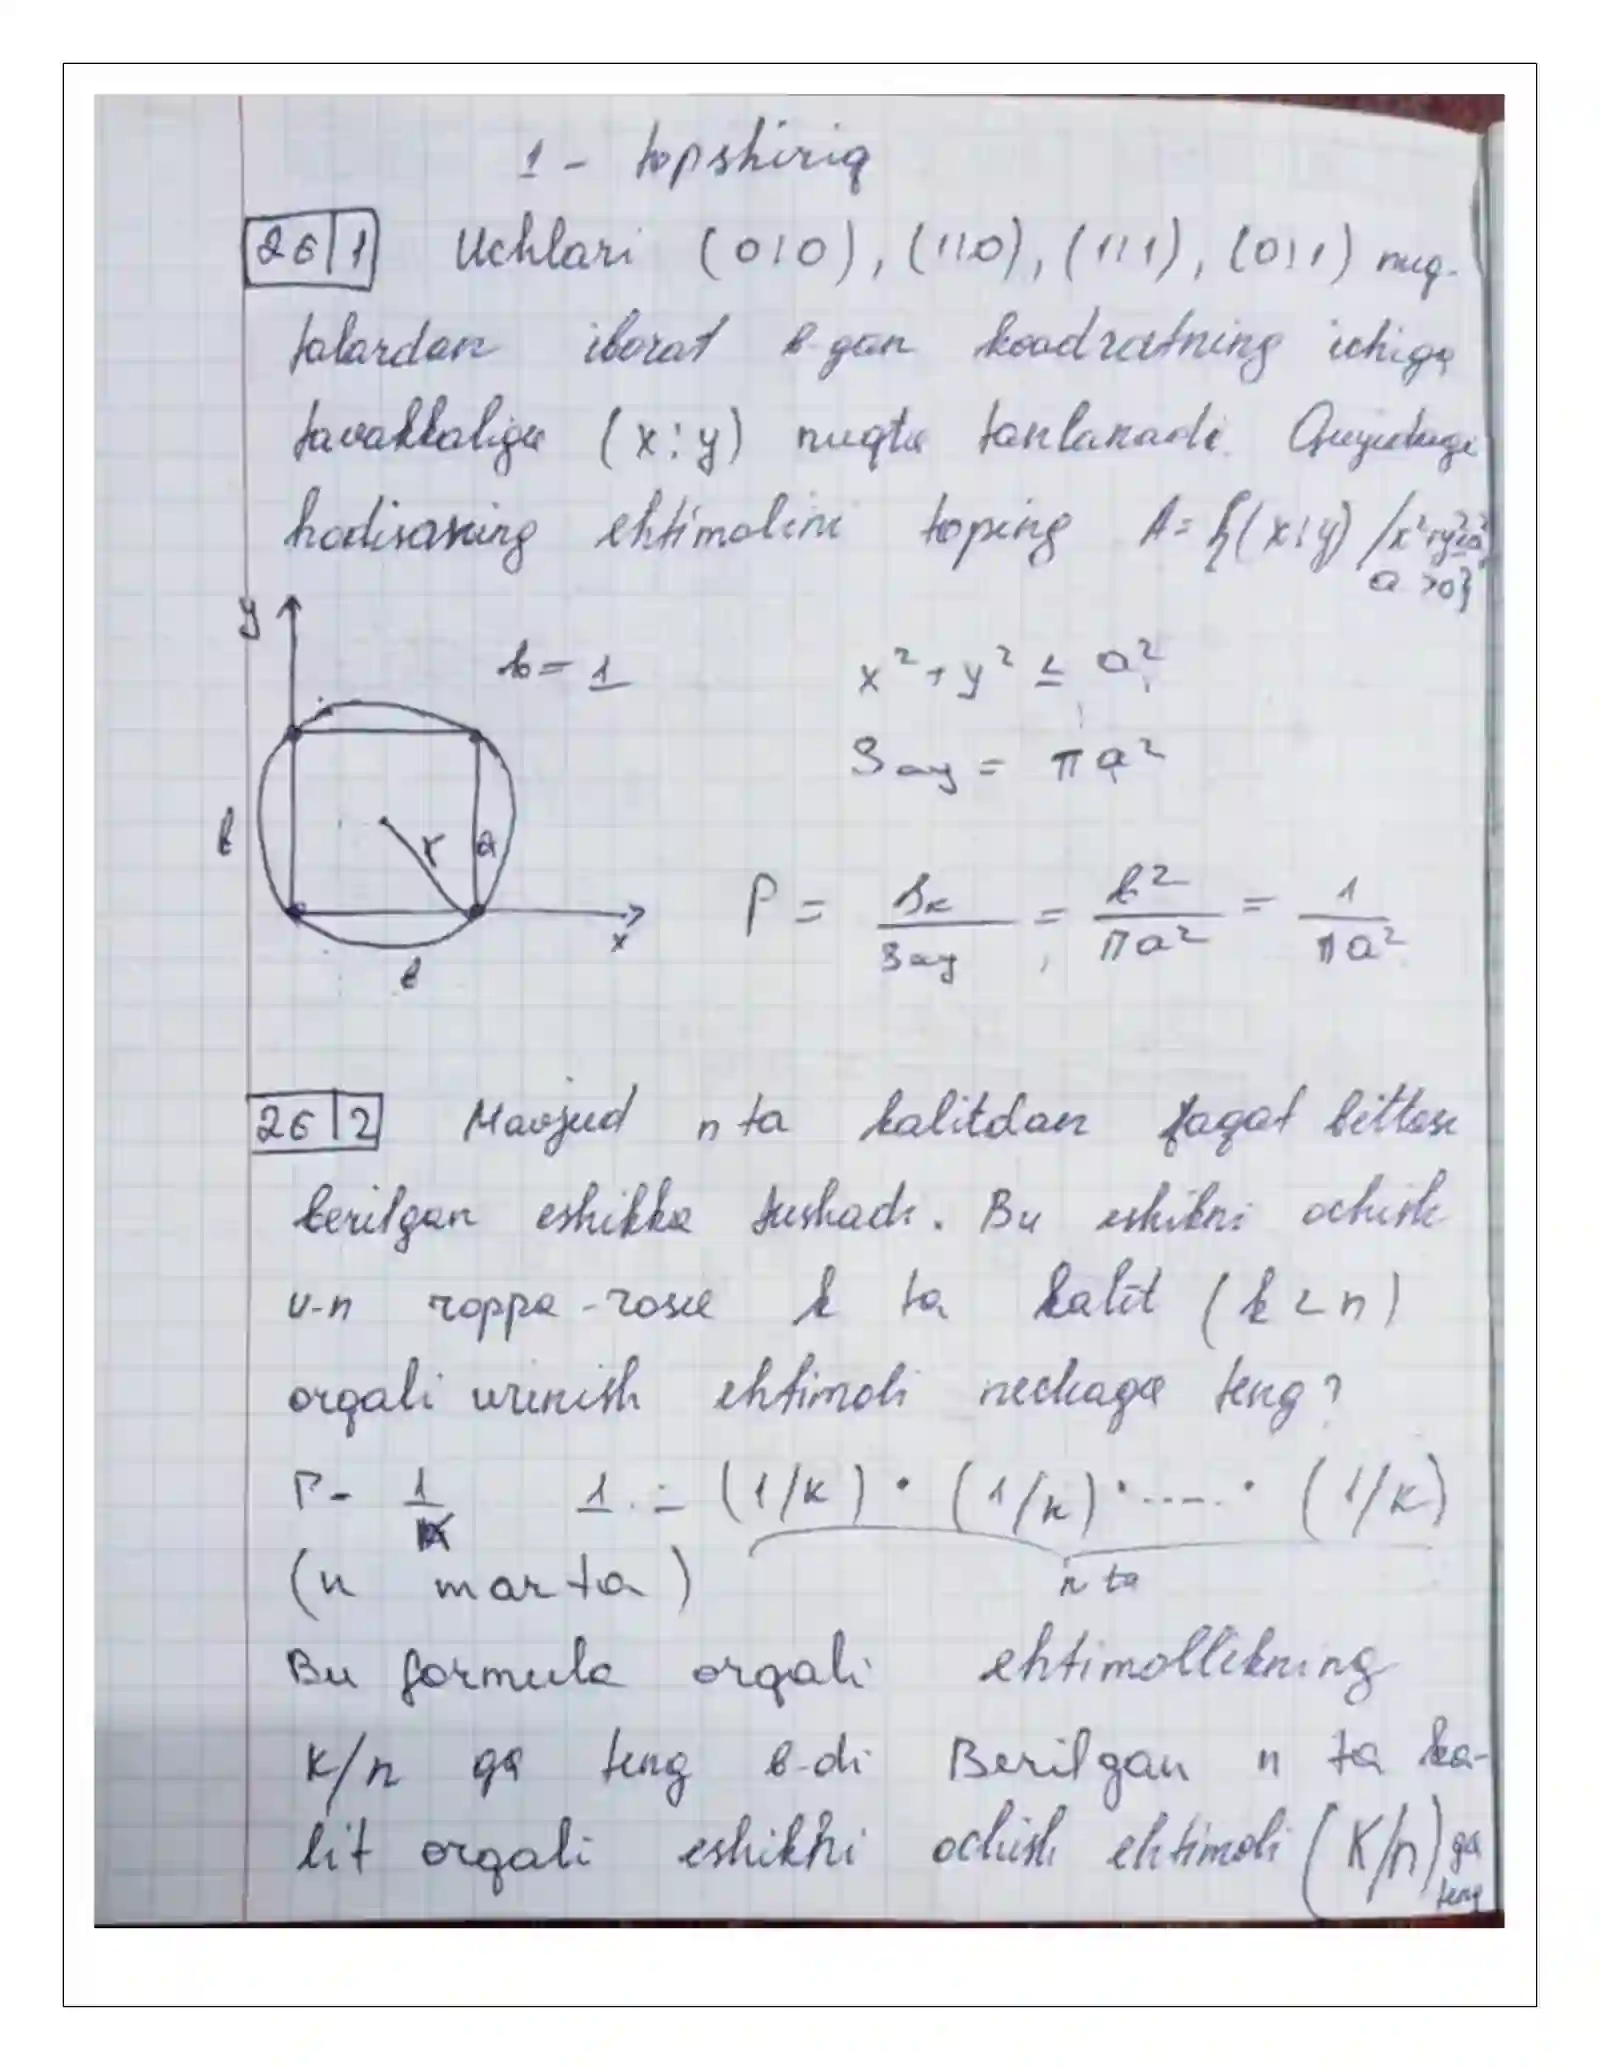 1 - topshiriq
26|1 Uchlari (0;0), (1;0), (1;1), (0;1) nuq-
talardan iborat b-gan kvadratning ichiga
tavakkaliga (x;y) nuqta tanlanadi. Quyidagi
hodisaning ehtimolini toping A={(x;y) /x²+y²≤a²,
a>0}
y
b=1
x²+y² ≤ a²
Say = πa²
b
r
a
P = Sk/Say = b²/πa² = 1/πa²
x
b
26|2 Mavjud n ta kalitdan faqat bittasi
berilgan eshikka tushadi. Bu eshikni ochish
u-n roppa-rosa k ta kalit (k<n)
orqali urinish ehtimoli nechaga teng?
P- 1/k 1.- (1/k) · (1/k) · ---- · (1/k)
(n marta) n ta
Bu formula orqali ehtimollikning
K/n ga teng b-di Berilgan n ta ka-
lit orqali eshikni ochish ehtimoli (K/n) ga
teng